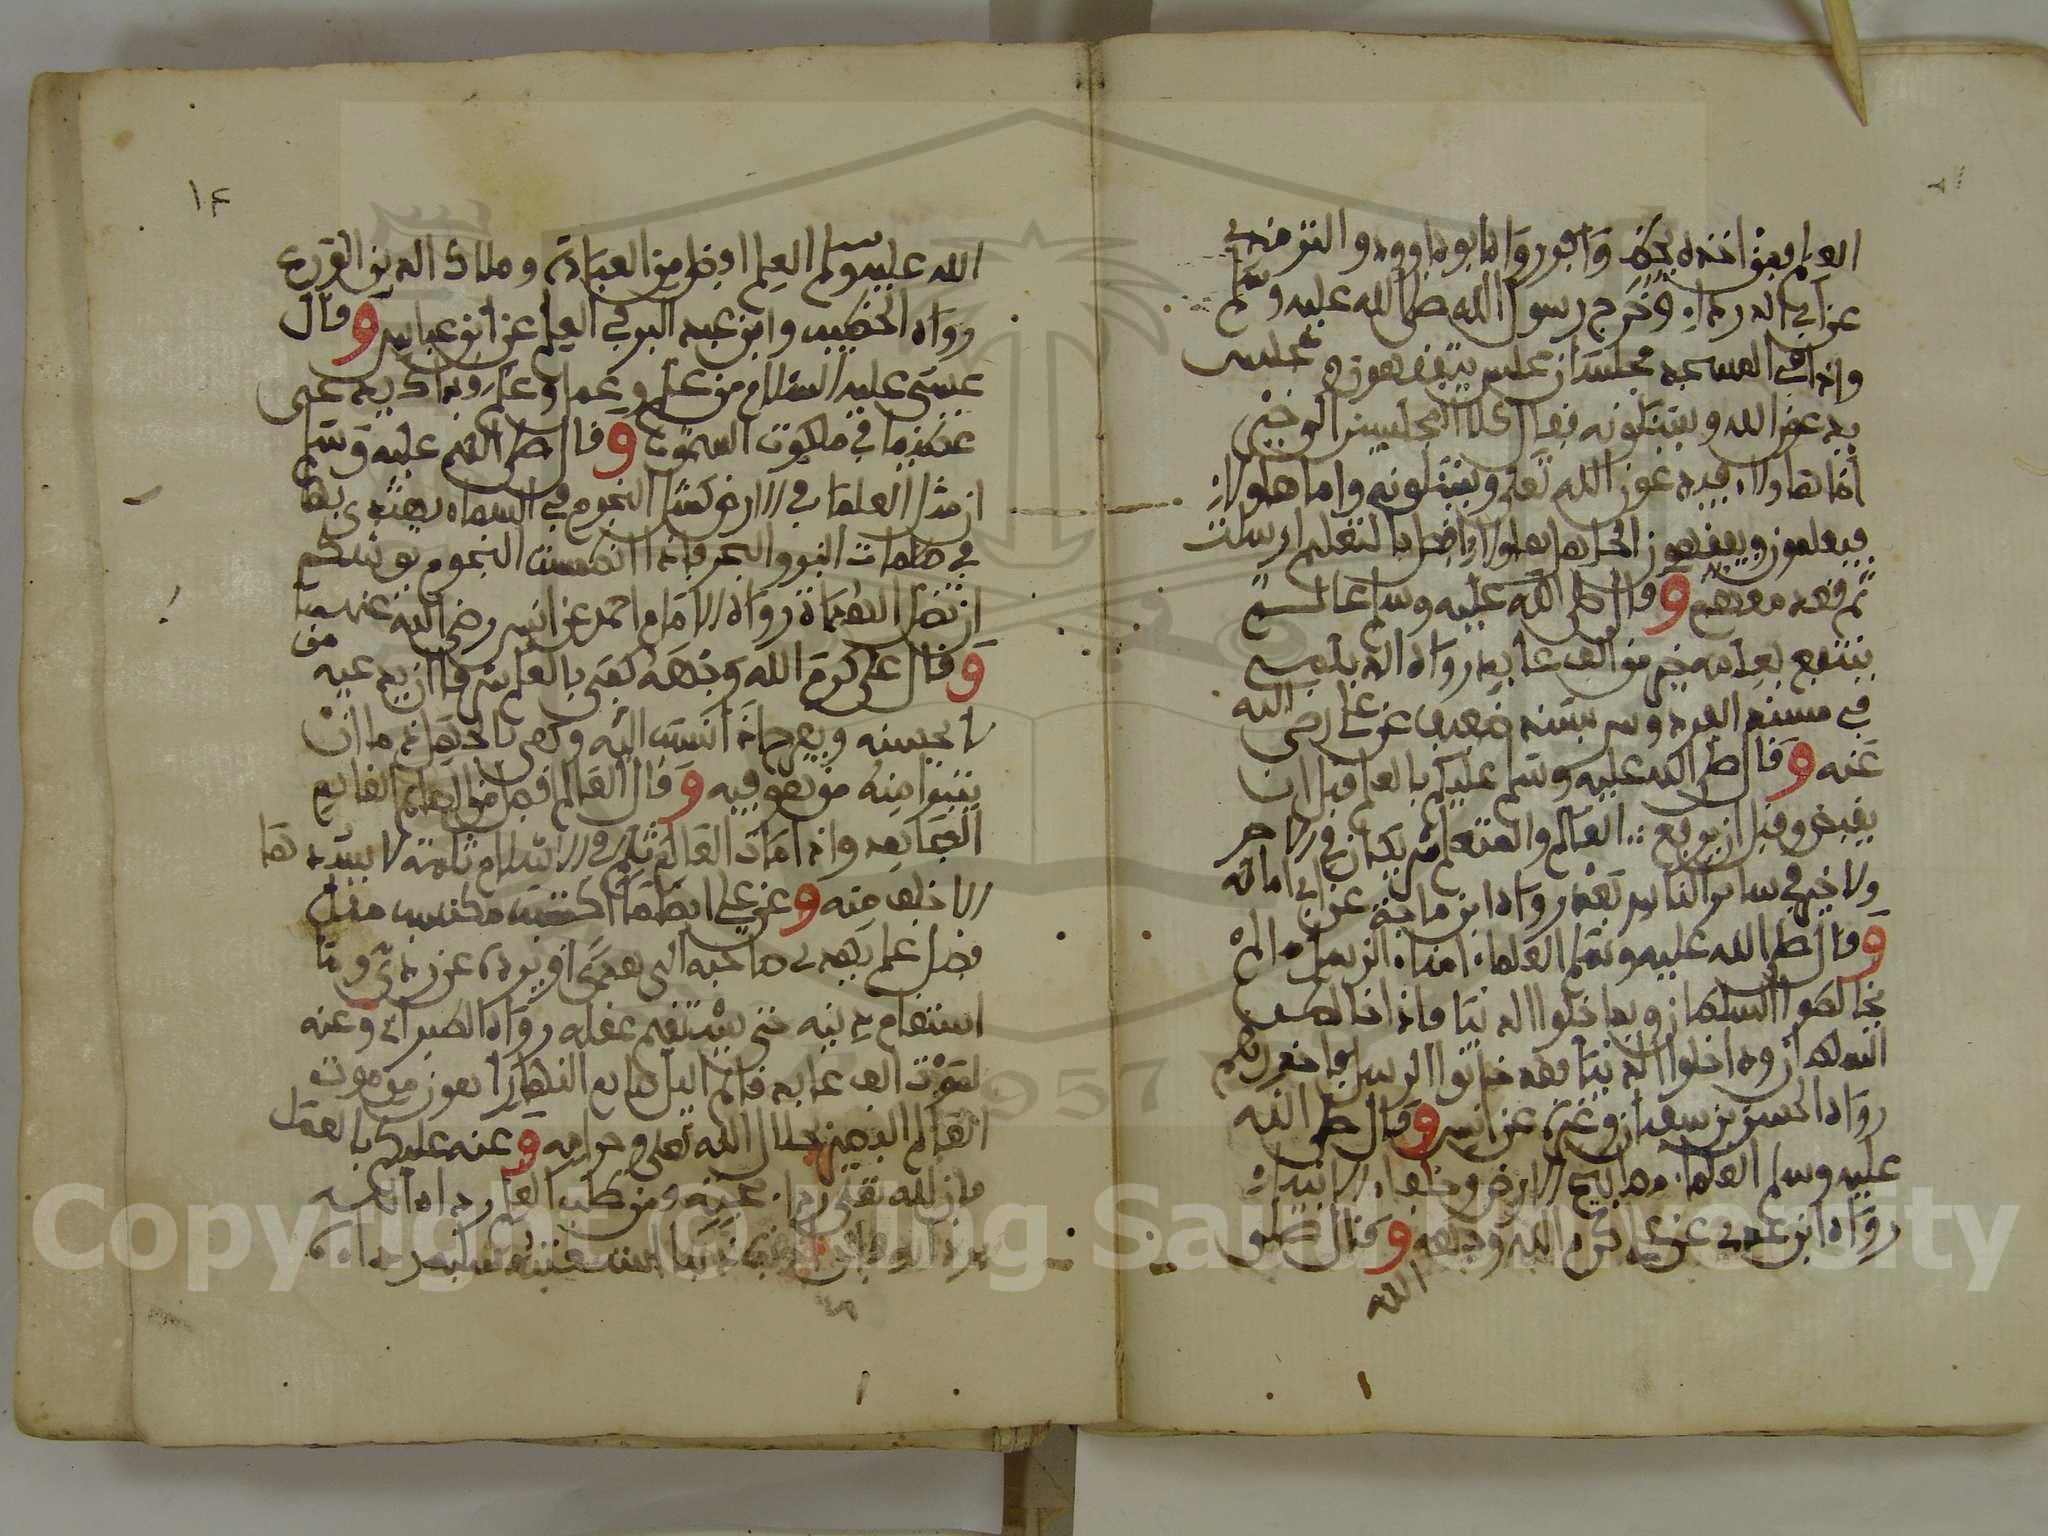 العلم فمن اخذه بحظ وافور رواه ابو داوود والترمذي
عن ابي الدرداء وخرج رسول الله صلى الله عليه وسلم
واذا في المسجد مجلسان مجلس يتفقهون ومجلس
يدعون الله ويسئلونه فقال كلا المجلسين الى خير
أما هاولاء فيدعون الله تعلى ويسئلونه واما هاولاء
فيتعلمون ويفقهون الجاهل هاولاء افضل بالتعليم ارسلت
ثم قعد معهم وقال صلى الله عليه وسلم عالم
ينتفع بعلمه خير من الف عابد رواه الديلمي
في مسند الفردوس بسند ضعيف عن علي رضى الله
عنه وقال صلى الله عليه وسلم عليكم بالعلم قبل ان
يقبض وقبل ان يرفع العالم والمتعلم شريكان في الاجر
ولا خير في سائر الناس بعد رواه ابن ماجة عن ابي امامة
وقال صلى الله عليه وسلم العلماء امناء الرسل ما لم
يخالطوا السلطان ويداخلوا الدنيا فاذا خالطوا
السلطان وداخلوا الدنيا فقد خانوا الرسل فاحذروهم
رواه الحسن بن سفيان وغيره عن انس وقال صلى الله
عليه وسلم العلماء مصابيح الارض وخلفاء الانبياء
رواه ابن عدي عن علي كرم الله وجهه وقال صلى
الله
١٤
الله عليه وسلم العلم افضل من العبادة وملاك الدين الورع
رواه الخطيب وابن عبد البر في العلم عن ابن عباس وقال
عيسى عليه السلام من علم وعمل وعلم فذاك يدعى
عظيما في ملكوت السموت وقال صلى الله عليه وسلم
ان مثل العلما في الارض كمثل النجوم في السماء يهتدى بها
في ظلمات البر والبحر فاذا انطمست النجوم يوشك
ان تضل الهداة رواه الامام احمد عن انس رضى الله عنه
وقال علي كرم الله وجهه كفى بالعلم شرفا ان يدعيه من
لا يحسنه ويفرح اذا نسب اليه وكفى بالجهل ذما ان
يتبرا منه من هو فيه وقال العالم افضل من الصائم القائم
المجاهد واذا مات العالم ثلم في الاسلام ثلمة لا يسدها
الا خلف منه وعن علي ايضا ما اكتسب مكتسب مثل
فضل علم يهدي صاحبه الى هدى او يرده عن ردى وما
استقام دينه حتى يستقيم عقله رواه الطبراني وعنه
لموت الف عابد قائم الليل صائم النهار اهون من موت
العالم البصير بحلال الله تعلى وحرامه وعنه عليكم بالعلم
فان لله تعلى رداء محبة ومن طلب العلم رداه الله